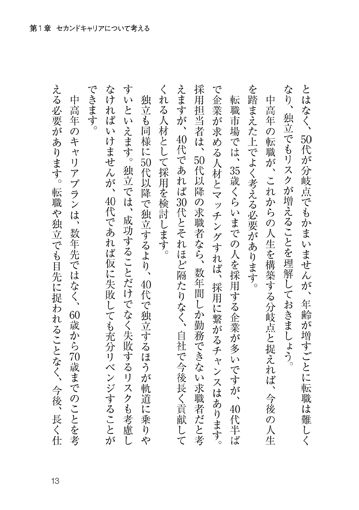 第1章 セカンドキャリアについて考える
とはなく、50代が分岐点でもかまいませんが、年齢が増すごとに転職は難しく
なり、独立でもリスクが増えることを理解しておきましょう。
中高年の転職が、これからの人生を構築する分岐点と捉えれば、今後の人生
を踏まえた上でよく考える必要があります。
転職市場では、35歳くらいまでの人を採用する企業が多いですが、40代半ば
で企業が求める人材とマッチングすれば、採用に繋がるチャンスはあります。
採用担当者は、50代以降の求職者なら、数年間しか勤務できない求職者だと考
えますが、40代であれば30代とそれほど隔たりなく、自社で今後長く貢献して
くれる人材として採用を検討します。
独立も同様に50代以降で独立するより、40代で独立するほうが軌道に乗りや
すいといえます。独立では、成功することだけでなく失敗するリスクも考慮し
なければいけませんが、40代であれば仮に失敗しても充分リベンジすることが
できます。
中高年のキャリアプランは、数年先ではなく、60歳から70歳までのことを考
える必要があります。転職や独立でも目先に捉われることなく、今後、長く仕
13